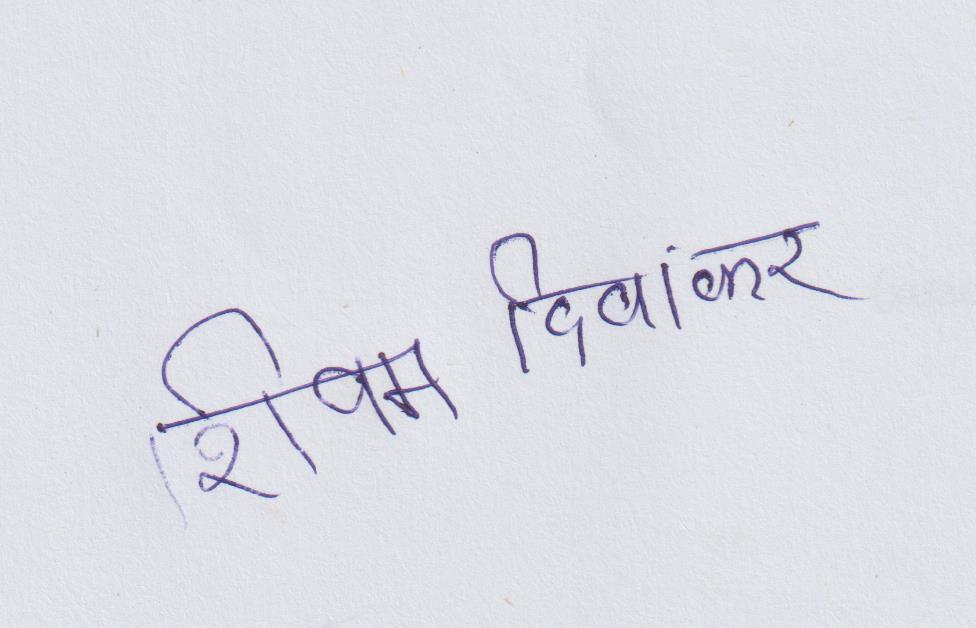 शिवम दिवांकर